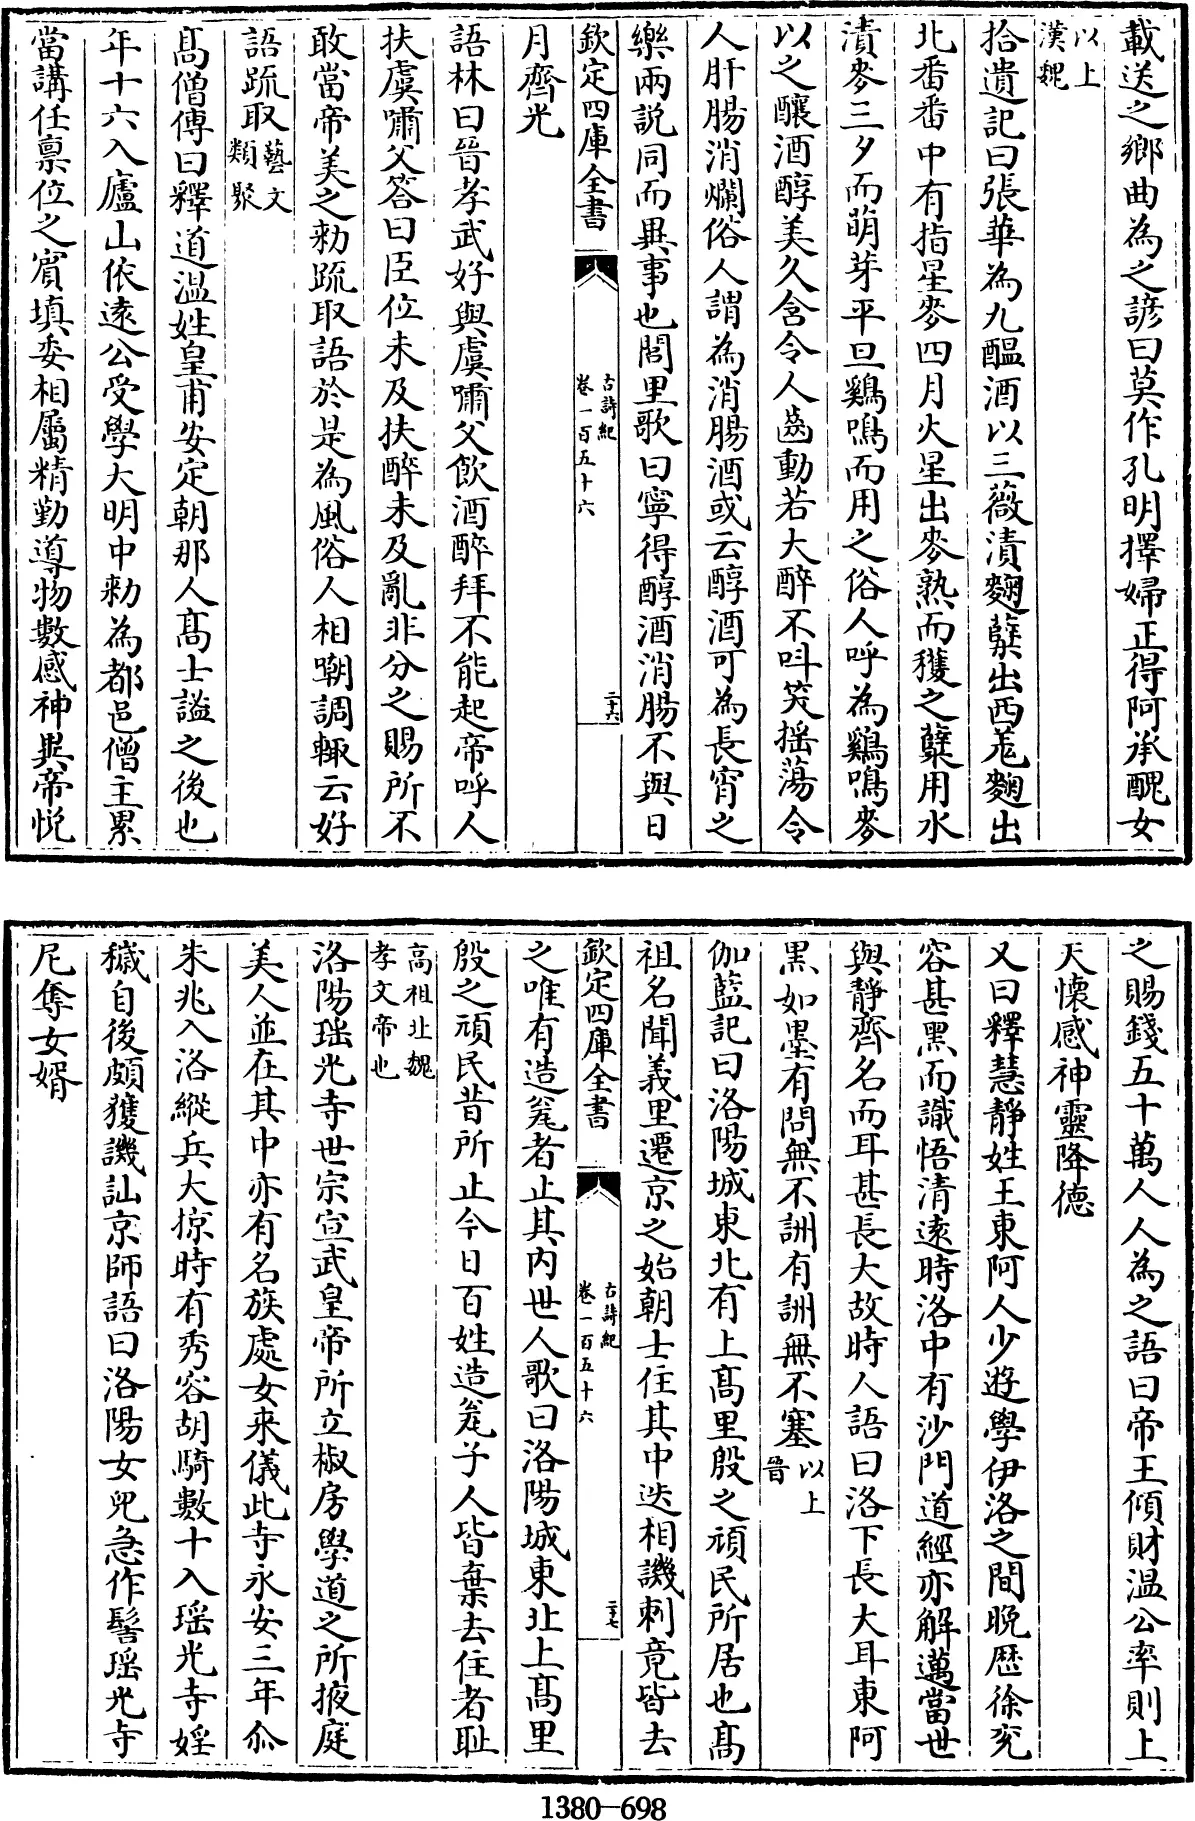 載送之鄉曲為之諺曰莫作孔明擇婦正得阿承醜女
以上
漢魏
拾遺記曰張華為九醞酒以三薇漬麴櫱出西羌麴出
北番番中有指星麥四月火星出麥熟而穫之櫱用水
漬麥三夕而萌芽平旦鷄鳴而用之俗人呼為鷄鳴麥
以之釀酒醇美久含令人齒動若大醉不呌笑揺蕩令
人肝腸消爛俗人謂為消腸酒或云醇酒可為長宵之
樂兩説同而異事也閭里歌曰寧得醇酒消腸不與日
欽定四庫全書
古詩紀
卷一百五十六
二十六
月齊光
語林曰晉孝武好與虞嘯父飲酒醉拜不能起帝呼人
扶虞嘯父答曰臣位未及扶醉未及亂非分之賜所不
敢當帝美之勑疏取語於是為風俗人相嘲調輙云好
語疏取藝文
類聚
髙僧傳曰釋道温姓皇甫安定朝那人髙士謐之後也
年十六入廬山依逺公受學大明中勑為都邑僧主累
當講任禀位之賔填委相屬精勤導物數感神異帝悦
之賜錢五十萬人人為之語曰帝王傾財温公率則上
天懐感神靈降德
又曰釋慧靜姓王東阿人少遊學伊洛之間晚歴徐兖
容甚黑而識悟清逺時洛中有沙門道經亦解邁當世
與靜齊名而耳甚長大故時人語曰洛下長大耳東阿
黒如墨有問無不詶有詶無不塞以上
晉
伽藍記曰洛陽城東北有上髙里殷之頑民所居也髙
祖名聞義里遷京之始朝士住其中迭相譏刺竟皆去
欽定四庫全書
古詩紀
卷一百五十六
二十七
之唯有造瓫者止其内世人歌曰洛陽城東北上髙里
殷之頑民昔所止今日百姓造瓫子人皆棄去住者耻
高祖北魏
孝文帝也
洛陽瑶光寺世宗宣武皇帝所立椒房學道之所掖庭
美人並在其中亦有名族處女来儀此寺永安三年尒
朱兆入洛縱兵大掠時有秀容胡騎數十入瑶光寺婬
穢自後頗獲譏訕京師語曰洛陽女兒急作髻瑶光寺
尼奪女婿
1380—698